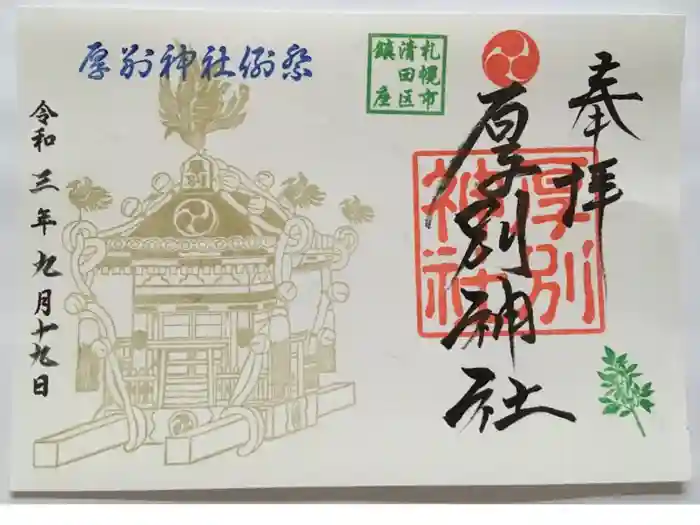 奉拝
厚別神社
厚別
神社
札幌市
清田区
鎮座
厚別神社例祭
令和三年九月十九日